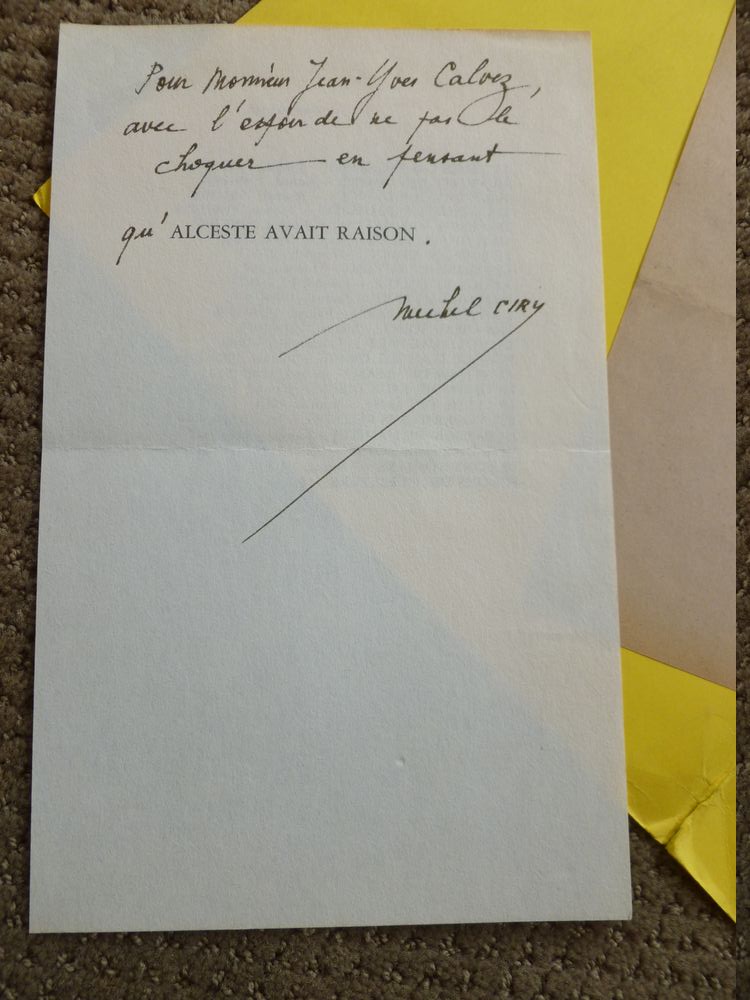 Pour Monsieur Jean-Yves Calvez,
avec l'espoir de ne pas le
choquer en pensant
qu' ALCESTE AVAIT RAISON.
Michel CIRY